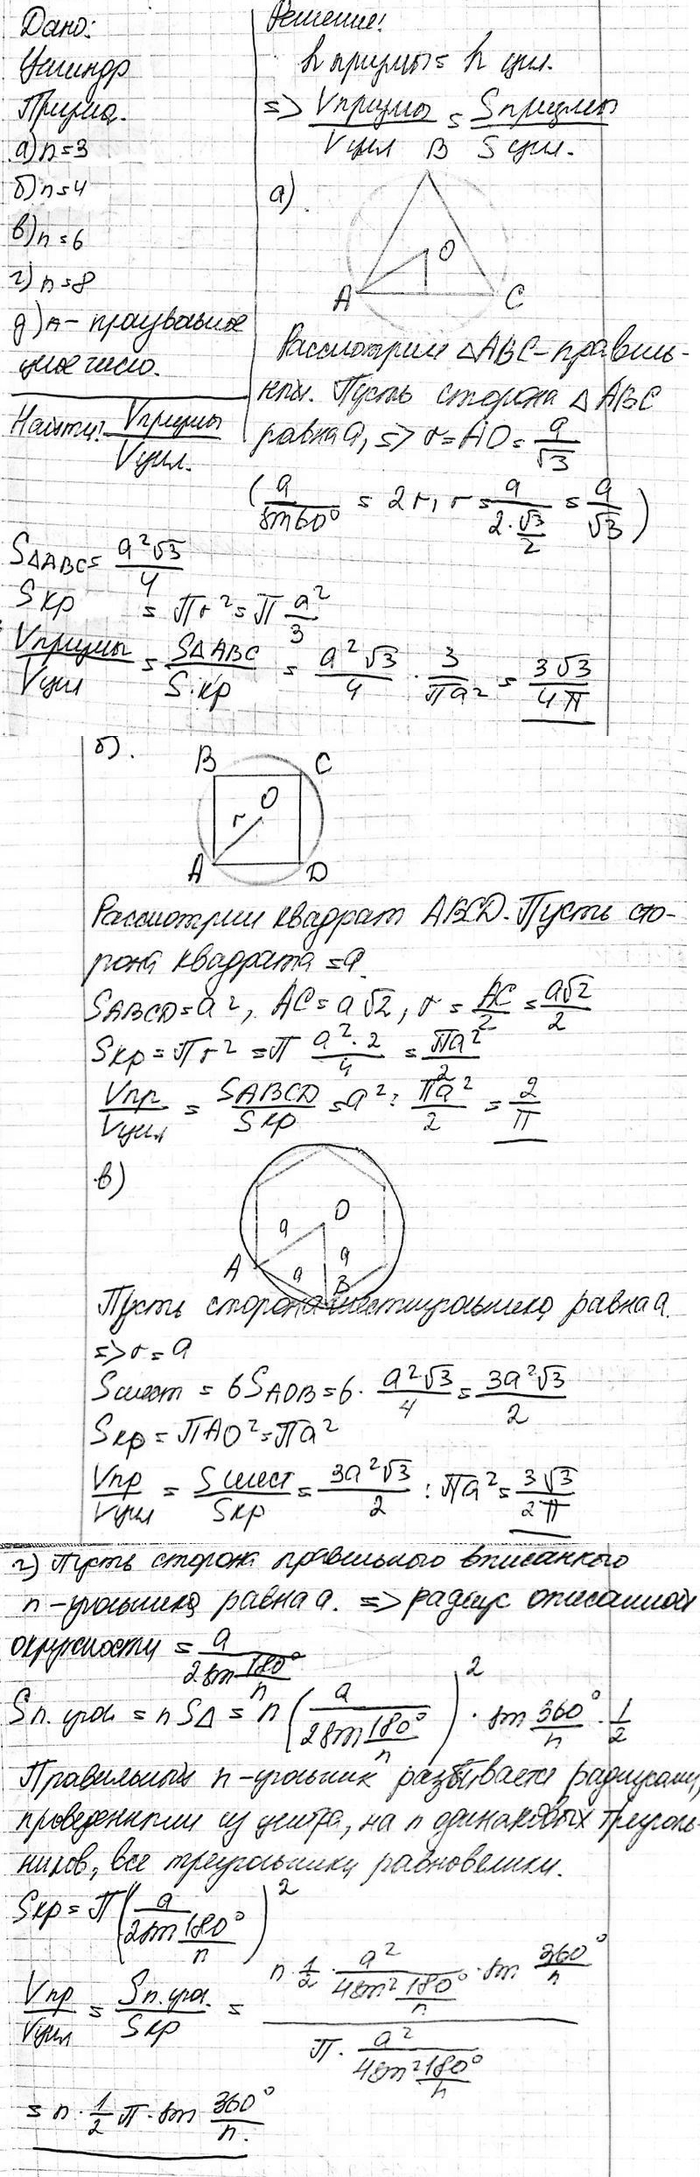 Дано:
Цилиндр
Призма.
а) n=3
б) n=4
в) n=6
г) n=8
д) n - произвольное
целое число.
Найти: Vпризмы / Vцил.
Решение:
h призмы = h цил.
=> Vпризмы / Vцил = Sпризмы / Sцил.
а).
B
O
A
C
Рассмотрим △ABC - правиль-
ный. Пусть сторона △ABC
равна a, => r = AO = a/√3
(a/sin60° = 2r, r = a/(2·√3/2) = a/√3)
S△ABC = a²√3/4
Sкр = πr² = π a²/3
Vпризмы/Vцил = S△ABC/Sкр = a²√3/4 · 3/πa² = 3√3/4π
б).
B C
O
r
A D
Рассмотрим квадрат ABCD. Пусть сто-
рона квадрата = a.
SABCD = a², AC = a√2, r = AC/2 = a√2/2
Sкр = πr² = π a²·2/4 = πa²/2
Vпр/Vцил = SABCD/Sкр = a² : πa²/2 = 2/π
в)
O
a
a
A
a
B
Пусть сторона шестиугольника равна a.
=> r = a
Sшест = 6SAOB = 6· a²√3/4 = 3a²√3/2
Sкр = πAO² = πa²
Vпр/Vцил = Sшест/Sкр = 3a²√3/2 : πa² = 3√3/2π
г) Пусть сторона правильного вписанного
n-угольника равна a. => радиус описанной
окружности = a/(2sin 180°/n)
Sп.угол = nS△ = n (a/(2sin 180°/n))² · sin 360°/n · 1/2
Правильный n-угольник разбивается радиусами,
проведенными из центра, на n одинаковых треуголь-
ников, все треугольники равновелики.
Sкр = π(a/(2sin 180°/n))²
Vпр/Vцил = Sп.угол./Sкр = (n·1/2 · a²/(4sin² 180°/n) · sin 360°/n) / (π · a²/(4sin² 180°/n))
= n · 1/2 π · sin 360°/n.